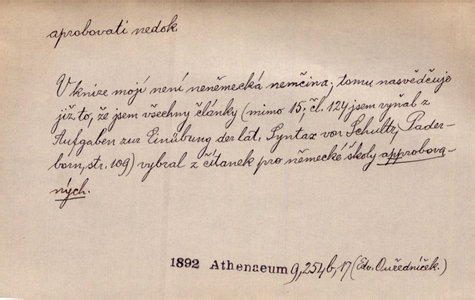 aprobovati nedok
V knize mojí není neněmecká němčina; tomu nasvědčuje
již to, že jsem všechny články (mimo 15; čl. 124 jsem vyňal z
Aufgaben zur Einübung der lat. Syntax von Schultz, Pader-
born, str. 109) vybral z čítanek pro německé školy approbova-
ných.
1892 Athenaeum 9, 254b, 17 (Edv. Ouředníček.)